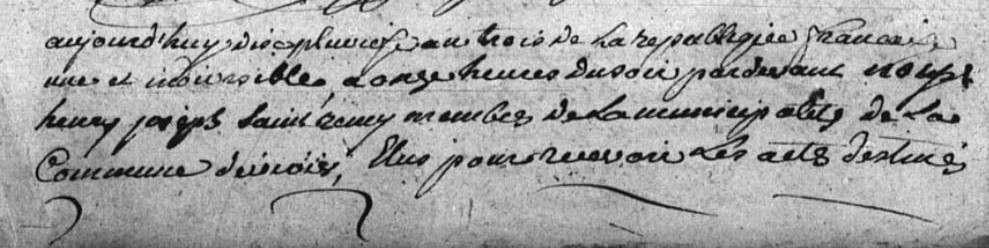 aujourd'huy dix pluviose an trois de la republiqee francaise
une et indivisible, a onze heures du soir par devant nous
henry joseph saint remy membre de la municipalité de la
Commune de, Elus pour recevoir Les acts destinés